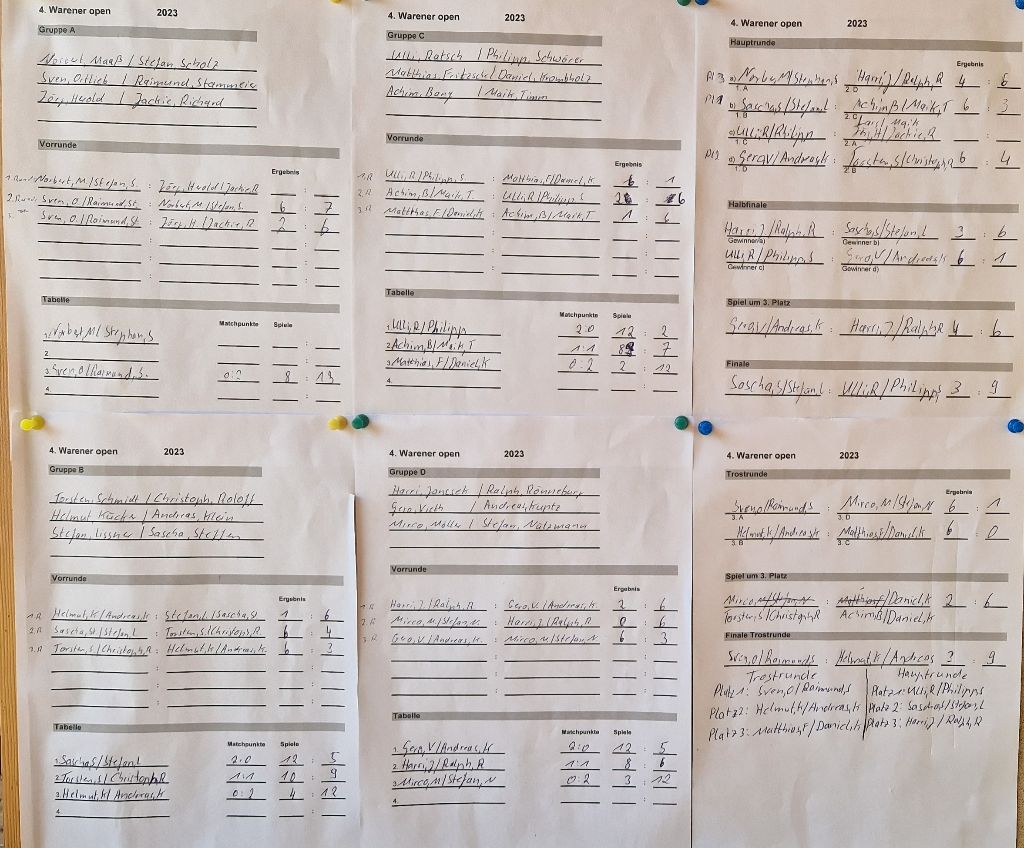 4. Warener open 2023
Gruppe A
Norbert, Maaß / Stefan Scholz
Sven, Ortlieb / Raimund, Stammeier
Jörg, Herold / Jackie, Richard
Vorrunde
Ergebnis
Norbert, M/Stefan, S. : Jörg, Herold/Jackie R :
Sven, O./Raimund, St. : Norbert, M/Stefan, S. 6 : 7
Sven, O./Raimund, St : Jörg, H./Jackie, R. 2 : 6
Tabelle
Matchpunkte Spiele
1. Norbert M/ Stephan, S
2.
3. Sven, O/Raimund, S. 0:2 8 : 13
4. Warener open 2023
Gruppe C
Ulli, Ratsch / Philipp, Schwörer
Matthias, Fritzsche/ Daniel, Krombholz
Achim, Bany / Maik, Timm
Vorrunde
Ergebnis
1.R Ulli, R/Philipp, S : Matthias, F/Daniel, K 6 : 1
2.R Achim, B/Maik, T : Ulli, R/Philipp, S 2 : 6
3.R Matthias, F/Daniel, K : Achim, B/Maik, T 1 : 6
Tabelle
Matchpunkte Spiele
1. Ulli, R/Philipp 2:0 12 : 2
2. Achim, B/Maik, T 1:1 8 : 7
3. Matthias, F/Daniel, K 0:2 2 : 12
4.
4. Warener open 2023
Hauptrunde
Ergebnis
a) Norbert, M/Stephan, S : Harri, J/Ralph, R 4 : 6
1. A 2. D
b) Sascha, S/Stefan, L : Achim, B/Maik, T 6 : 3
1. B 2. C
c) Ulli, R/Philipp : Jörg, H/Jackie, R :
1. C 2. A
d) Gero, V/Andreas, K : Torsten, S/Christoph, R 6 : 4
1. D 2. B
Halbfinale
Harri, J/Ralph, R : Sascha, S/Stefan, L 3 : 6
Gewinner/a) Gewinner b)
Ulli, R/Philipp, S : Gero, V/Andreas, K 6 : 1
Gewinner c) Gewinner d)
Spiel um 3. Platz
Gero, V/Andreas, K : Harri, J/Ralph, R 4 : 6
Finale
Sascha, S/Stefan, L : Ulli, R/Philipp, S 3 : 9
4. Warener open 2023
Gruppe B
Torsten, Schmidt / Christoph, Roloff
Helmut, Kuchn / Andreas, Klein
Stefan, Lissner / Sascha, Steffen
Vorrunde
Ergebnis
1.R Helmut, K/Andreas, K : Stefan, L/Sascha, St 1 : 6
2.R Sascha, St/Stefan, L : Torsten, S/Christoph, R 6 : 4
3.R Torsten, S/Christoph, R : Helmut, K/Andreas, K. 6 : 3
Tabelle
Matchpunkte Spiele
1. Sascha, S/Stefan, L 2:0 12 : 5
2. Torsten, S/ Christoph, R 1:1 10 : 9
3. Helmut, K/ Andreas, K 0:2 4 : 12
4.
4. Warener open 2023
Gruppe D
Harri, Janesek / Ralph, Rönneburg
Gero, Vieth / Andreas, Kuntz
Mirco, Möller / Stefan, Nützmann
Vorrunde
Ergebnis
1.R Harri, J/Ralph, R : Gero, V./ Andreas, K. 2 : 6
2.R Mirco, M/Stefan, N. : Harri, J/Ralph, R 0 : 6
3.R Gero, V/Andreas, K. : Mirco, M/Stefan, N 6 : 3
Tabelle
Matchpunkte Spiele
1. Gero, V/Andreas, K 2:0 12 : 5
2. Harri, J/Ralph, R 1:1 8 : 6
3. Mirco, M/Stefan, N 0:2 3 : 12
4.
4. Warener open 2023
Trostrunde
Ergebnis
Sven, O/Raimund, S : Mirco, M/Stefan, N 6 : 1
3. A 3. D
Helmut, K/Andreas, K : Matthias, F/Daniel, K 6 : 0
3. B 3. C
Spiel um 3. Platz
Mirco, M/Stefan, N : Matthias/Daniel, K 2 : 6
Torsten, S/Christoph, R Achim, B/Daniel, K
Finale Trostrunde
Sven, O/Raimund, S : Helmut, K/Andreas 3 : 9
Trostrunde Hauptrunde
Platz 1: Sven, O/Raimund, S Platz 1: Ulli, R/Philipp, S
Platz 2: Helmut, K/Andreas, K Platz 2: Sascha, S/Stefan, L
Platz 3: Matthias, F/Daniel, K Platz 3: Harri, J/Ralph, R